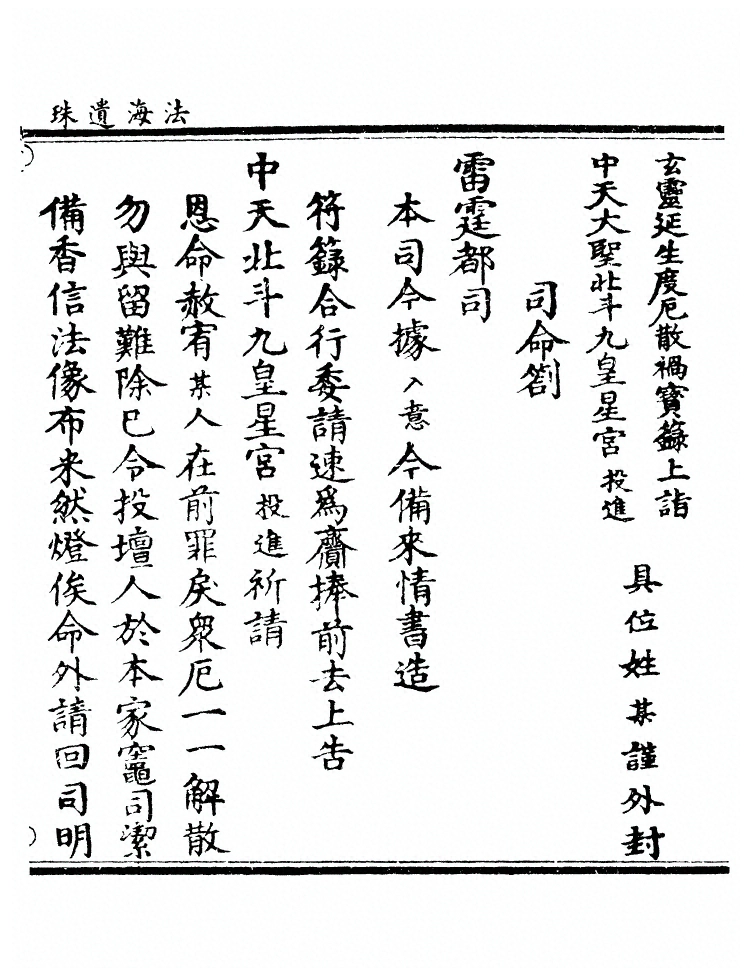 法海遺珠
玄靈延生度厄散禍寶籙上詣
中天大聖北斗九皇星宮投進
具位姓某謹外封
司命劄
雷霆都司
本司今據入意今備來情書造
符籙合行委請速爲齎捧前去上告
中天北斗九皇星宮投進祈請
恩命赦宥某人在前罪戾衆厄一一解散
勿與留難除已令投壇人於本家竈司潔
備香信法像布米然燈俟命外請回司明